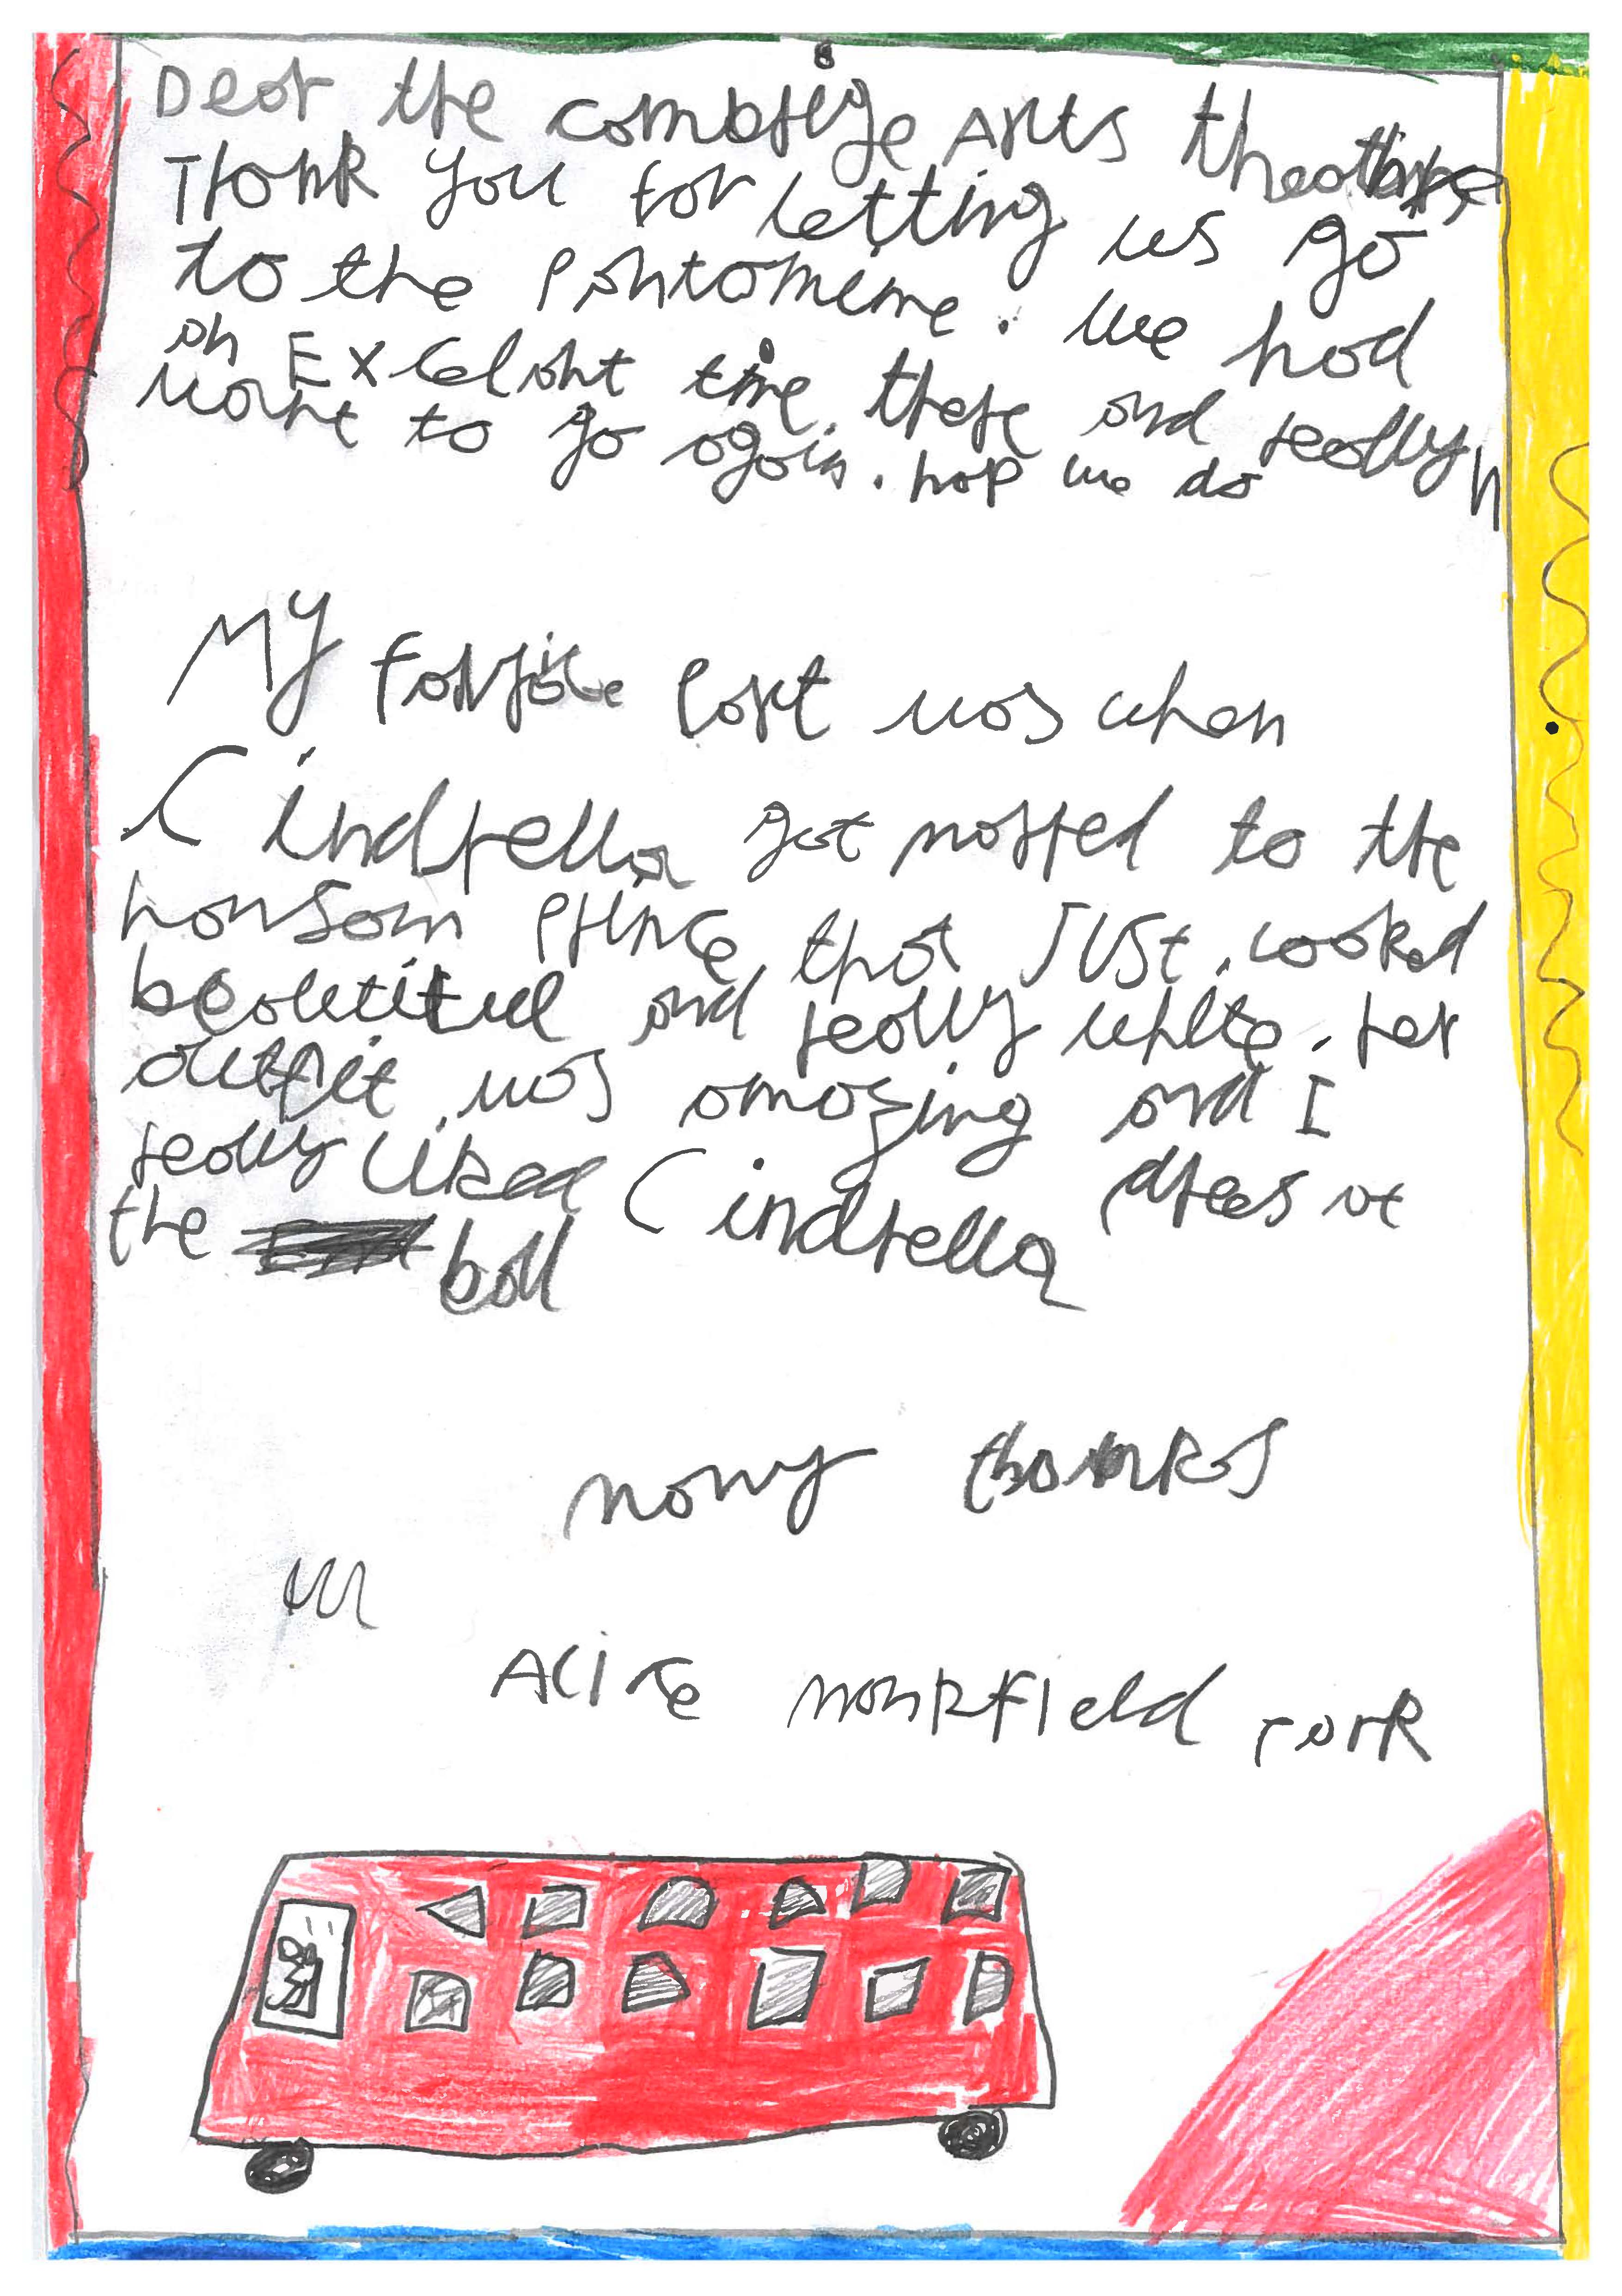 Dear the cambrige Arts theatre
Thank you for letting us go
to the Pantomime. We had
an Excelant time there and really
want to go again. hop we do
My part was when
Cindrella got marred to the
hansom Prince that Just looked
beautiful and really white. her
outfit was amazing and I
really liked Cindrella drees at
the ball
many thanks
Alice monkfield park